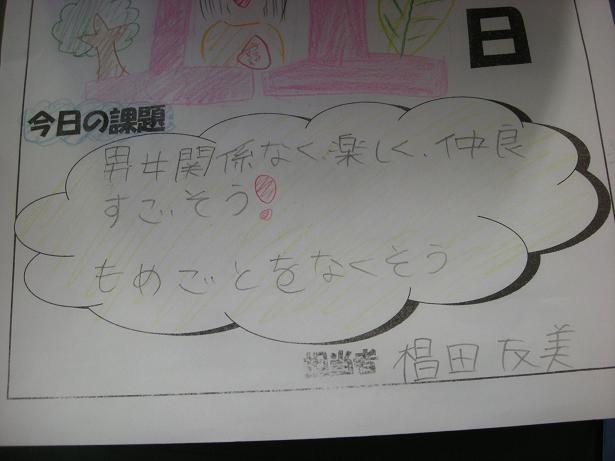 日
今日の課題
男女関係なく楽しく、仲良
すごそう!
もめごとをなくそう
担当者 椙田友美